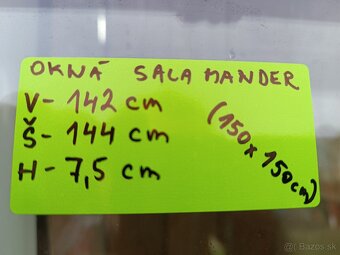 OKNÁ SALAMANDER
V - 142 cm
Š - 144 cm
H - 7,5 cm
(150 x 150cm)
Bazos.sk